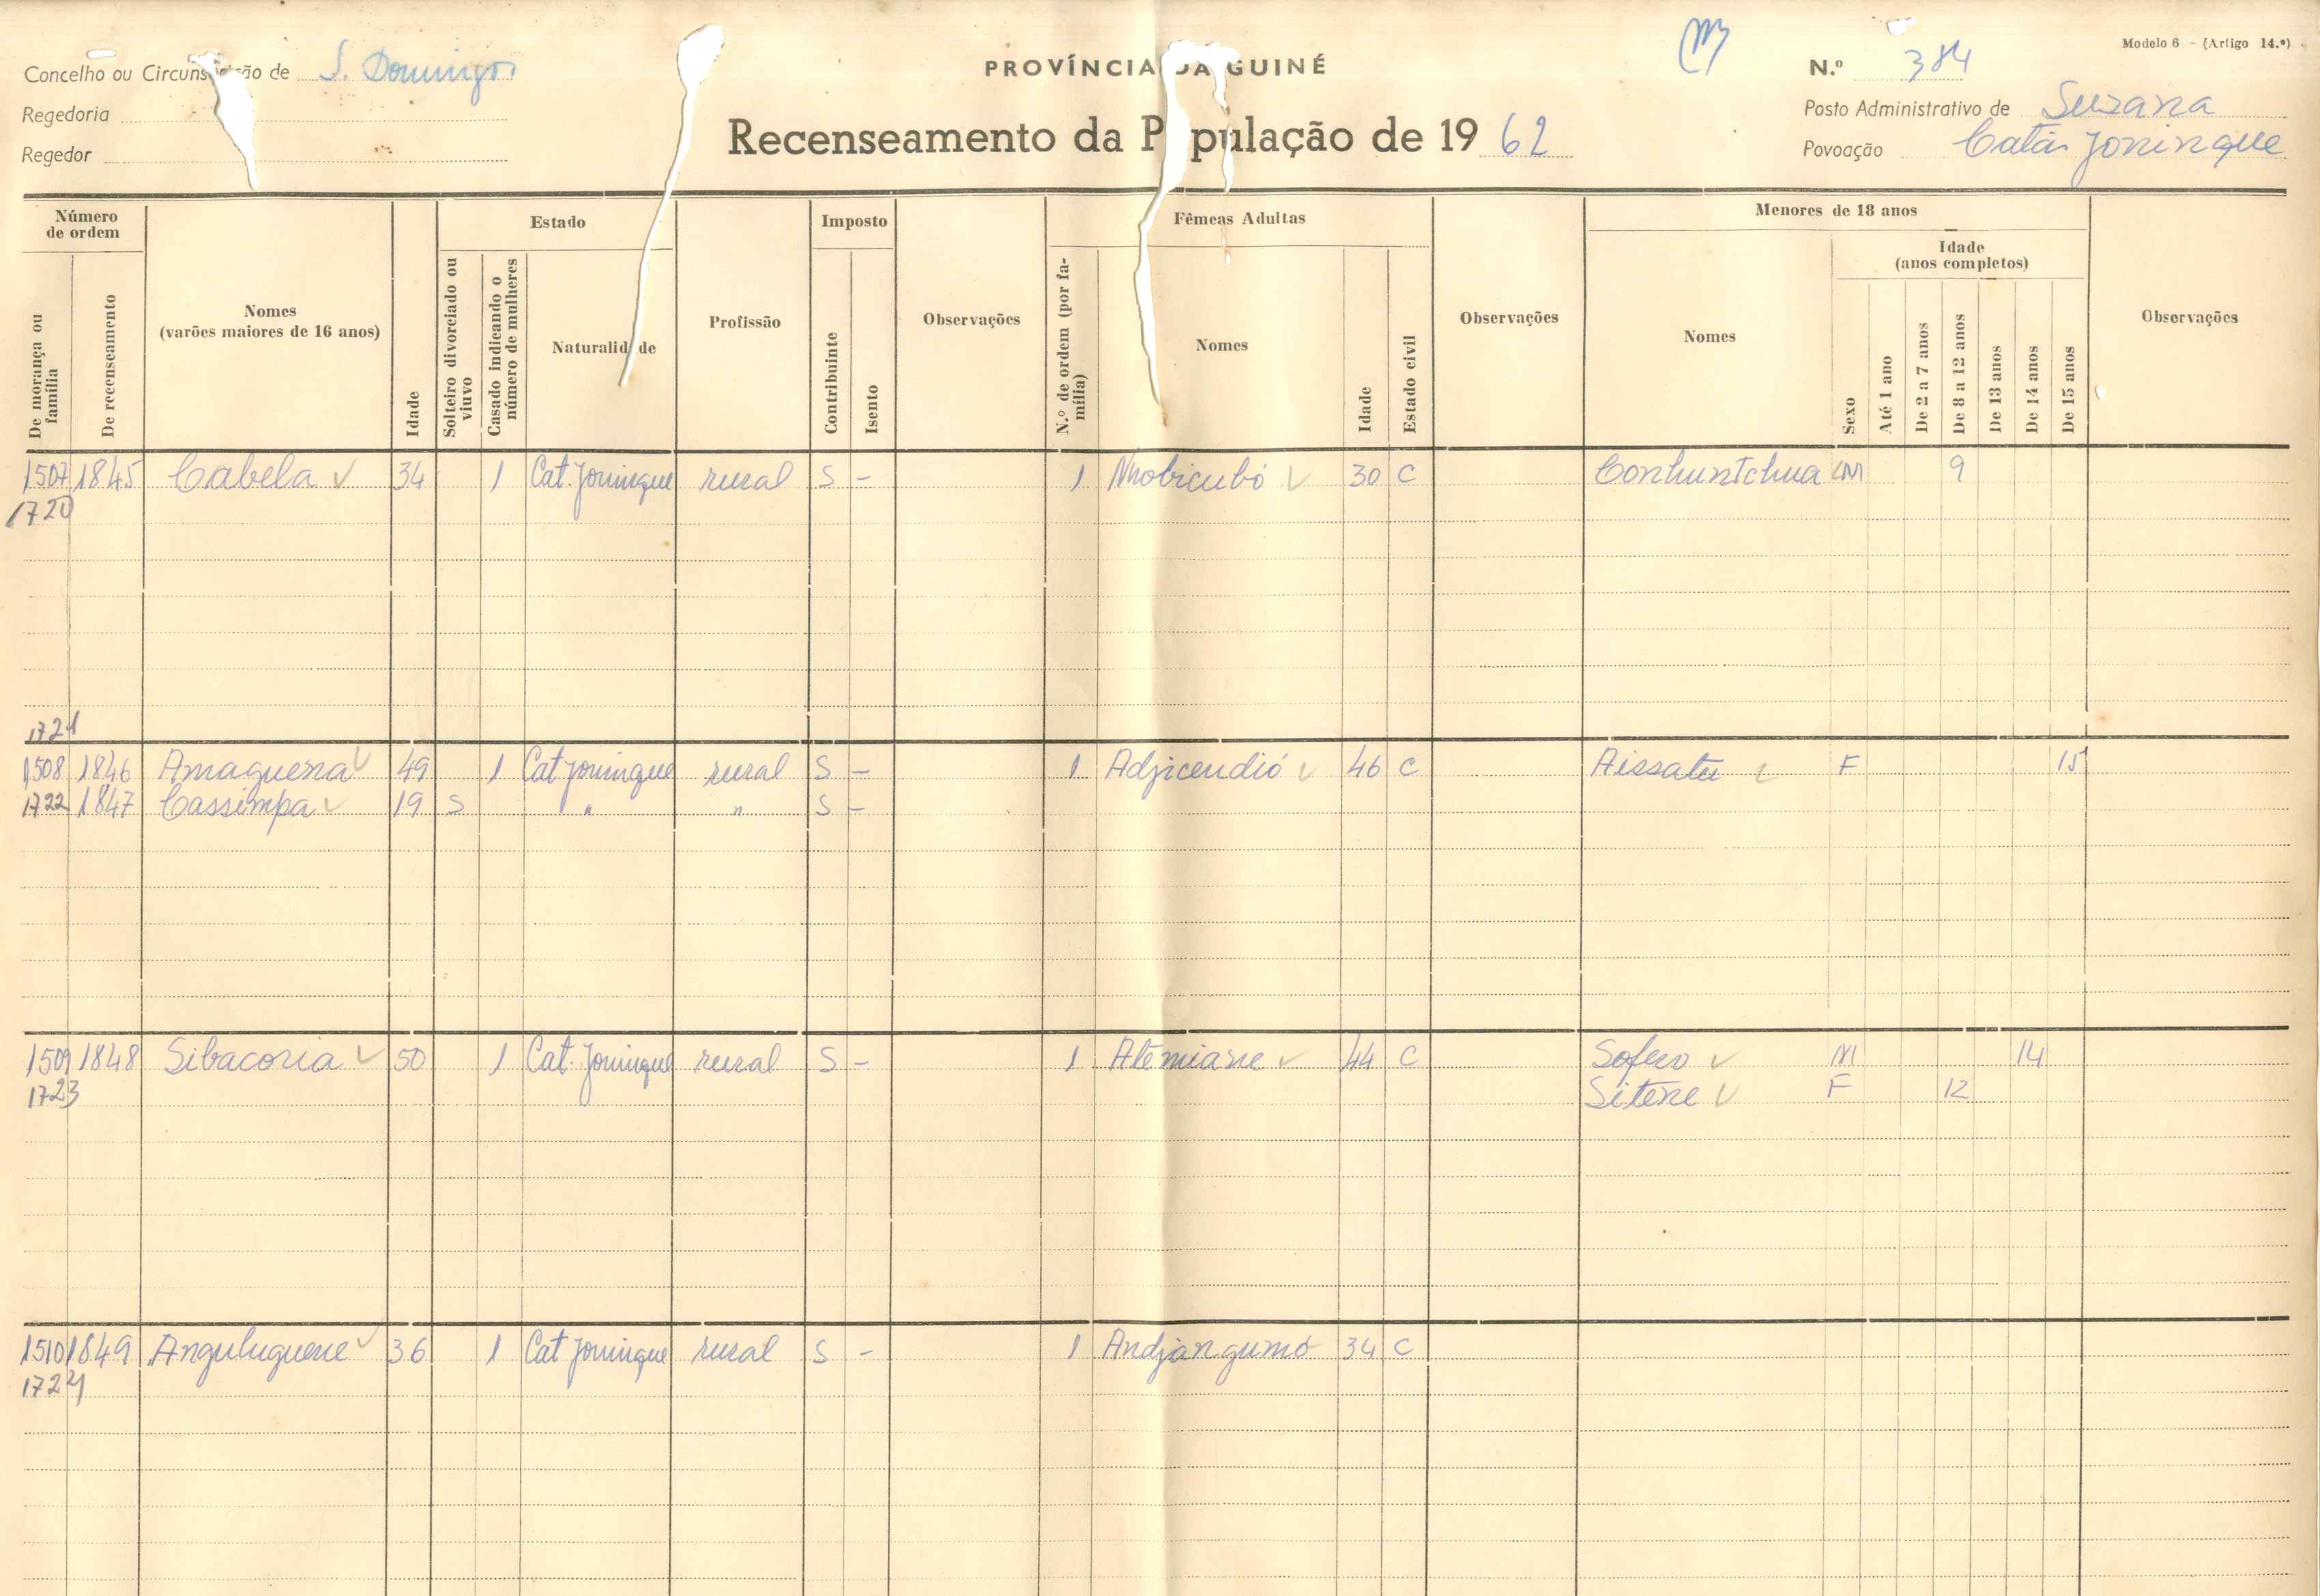 Modelo 6 - (Artigo 14.º)
Concelho ou Circunscrição de S. Domingos
PROVÍNCIA DA GUINÉ
N.º 384
Regedoria
Recenseamento da População de 1962
Posto Administrativo de Suzana
Regedor
Povoação Catão Joninque
Número de ordem
De morança ou família
De recenseamento
Nomes (varões maiores de 16 anos)
Idade
Estado
Solteiro divorciado ou viuvo
Casado indicando o número de mulheres
Naturalidade
Profissão
Imposto
Contribuinte
Isento
Observações
Fêmeas Adultas
N.º de ordem (por família)
Nomes
Idade
Estado civil
Observações
Menores de 18 anos
Nomes
Sexo
Idade (anos completos)
Até 1 ano
De 2 a 7 anos
De 8 a 12 anos
De 13 anos
De 14 anos
De 15 anos
Observações
1507 1845 Cabela 34 1 Cat. Joninque rural S - 1 Nhobicubó 30 C Conhuntchua M 9
1720
1721
1508 1846 Amaguena 49 1 Cat Joninque rural S - 1 Adjicendió 46 C Aissatu F 15
1722 1847 Cassimpa 19 S " " S -
1509 1848 Sibacoria 50 1 Cat. Joninque rural S - 1 Atemiane 44 C Sofeco M 14
1723 Sitene F 12
1510 1849 Anguluguene 36 1 Cat Joninque rural S - 1 Andjangumó 34 C
1724